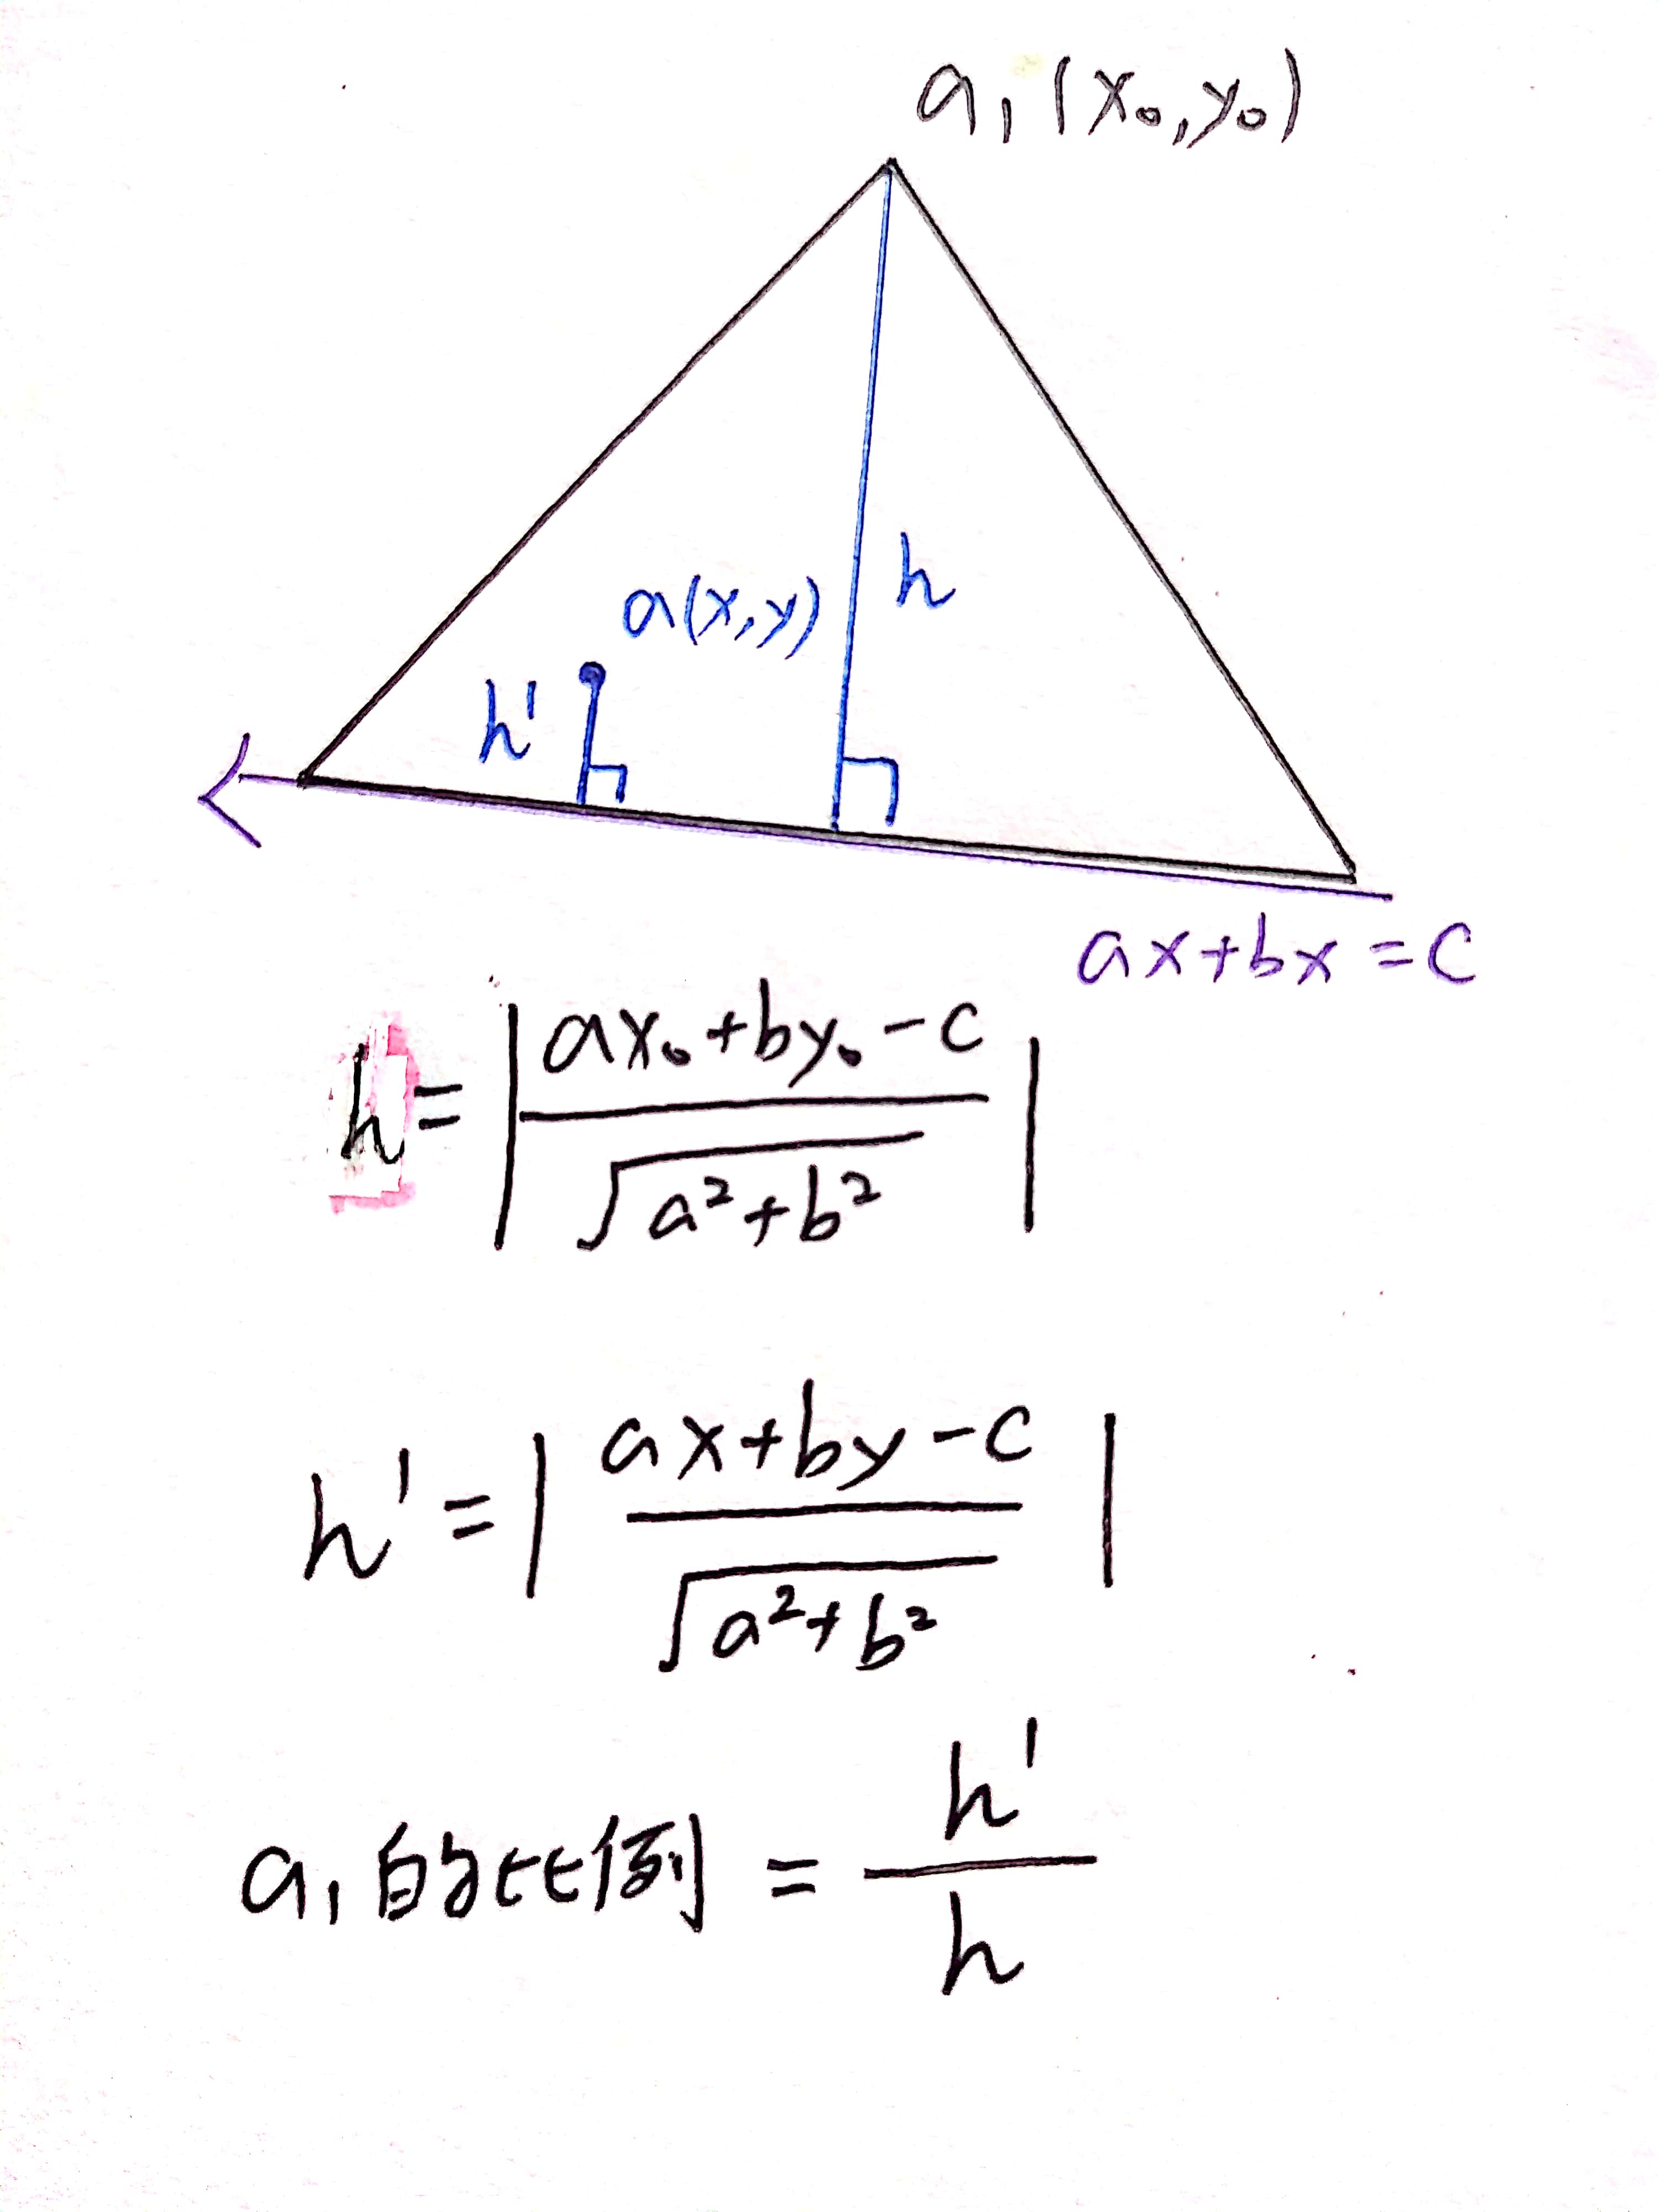 a₁(x₀,y₀)
h
a(x,y)
h'
ax+bx=c
h=|(ax₀+by₀-c)/√(a²+b²)|
h'=|(ax+by-c)/√(a²+b²)|
a₁的比例=h'/h